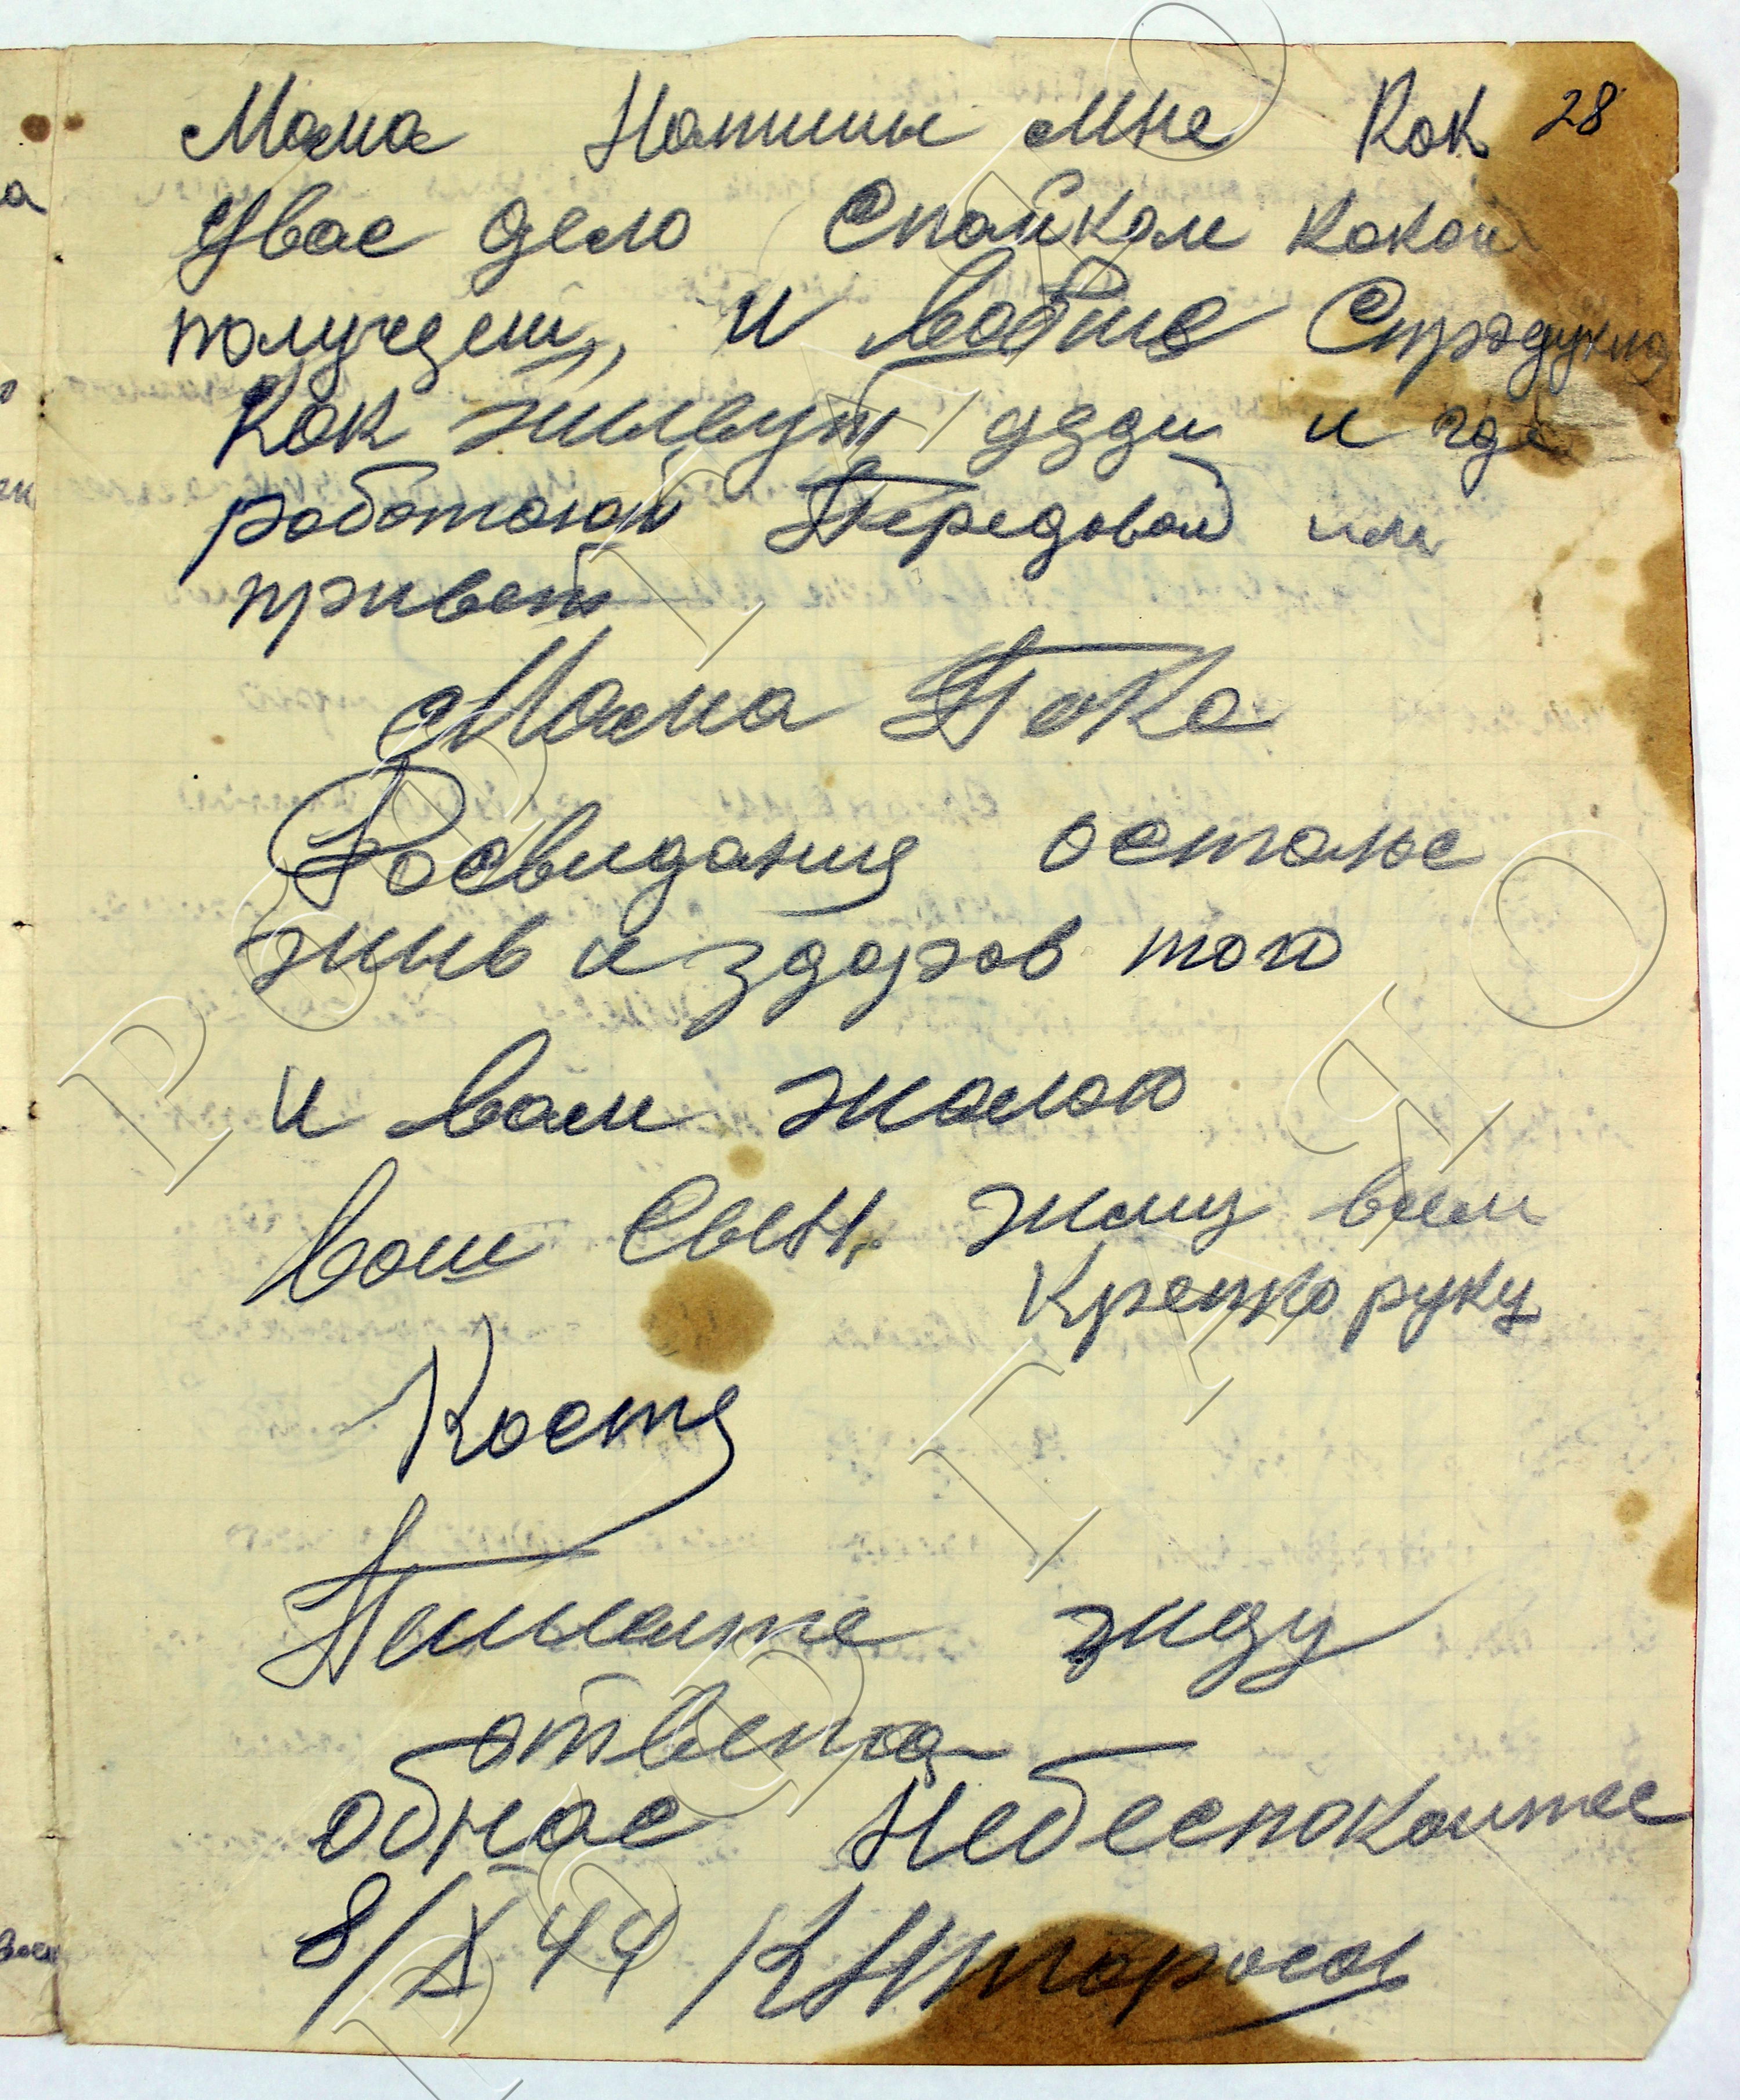 Мама Напиши мне Как 28
Увас дело Спайком какой
получаеш, и вобще
Как живут дяди и где
работают Передовай или
привет
Мама Пока
Досвидания остаюс
жив и здоров того
и вам жалаю
ваш Сын. жму вам
Крепко руку
Костя
Пишите жду
ответа
обнас Небеспокоитес
8/X 44